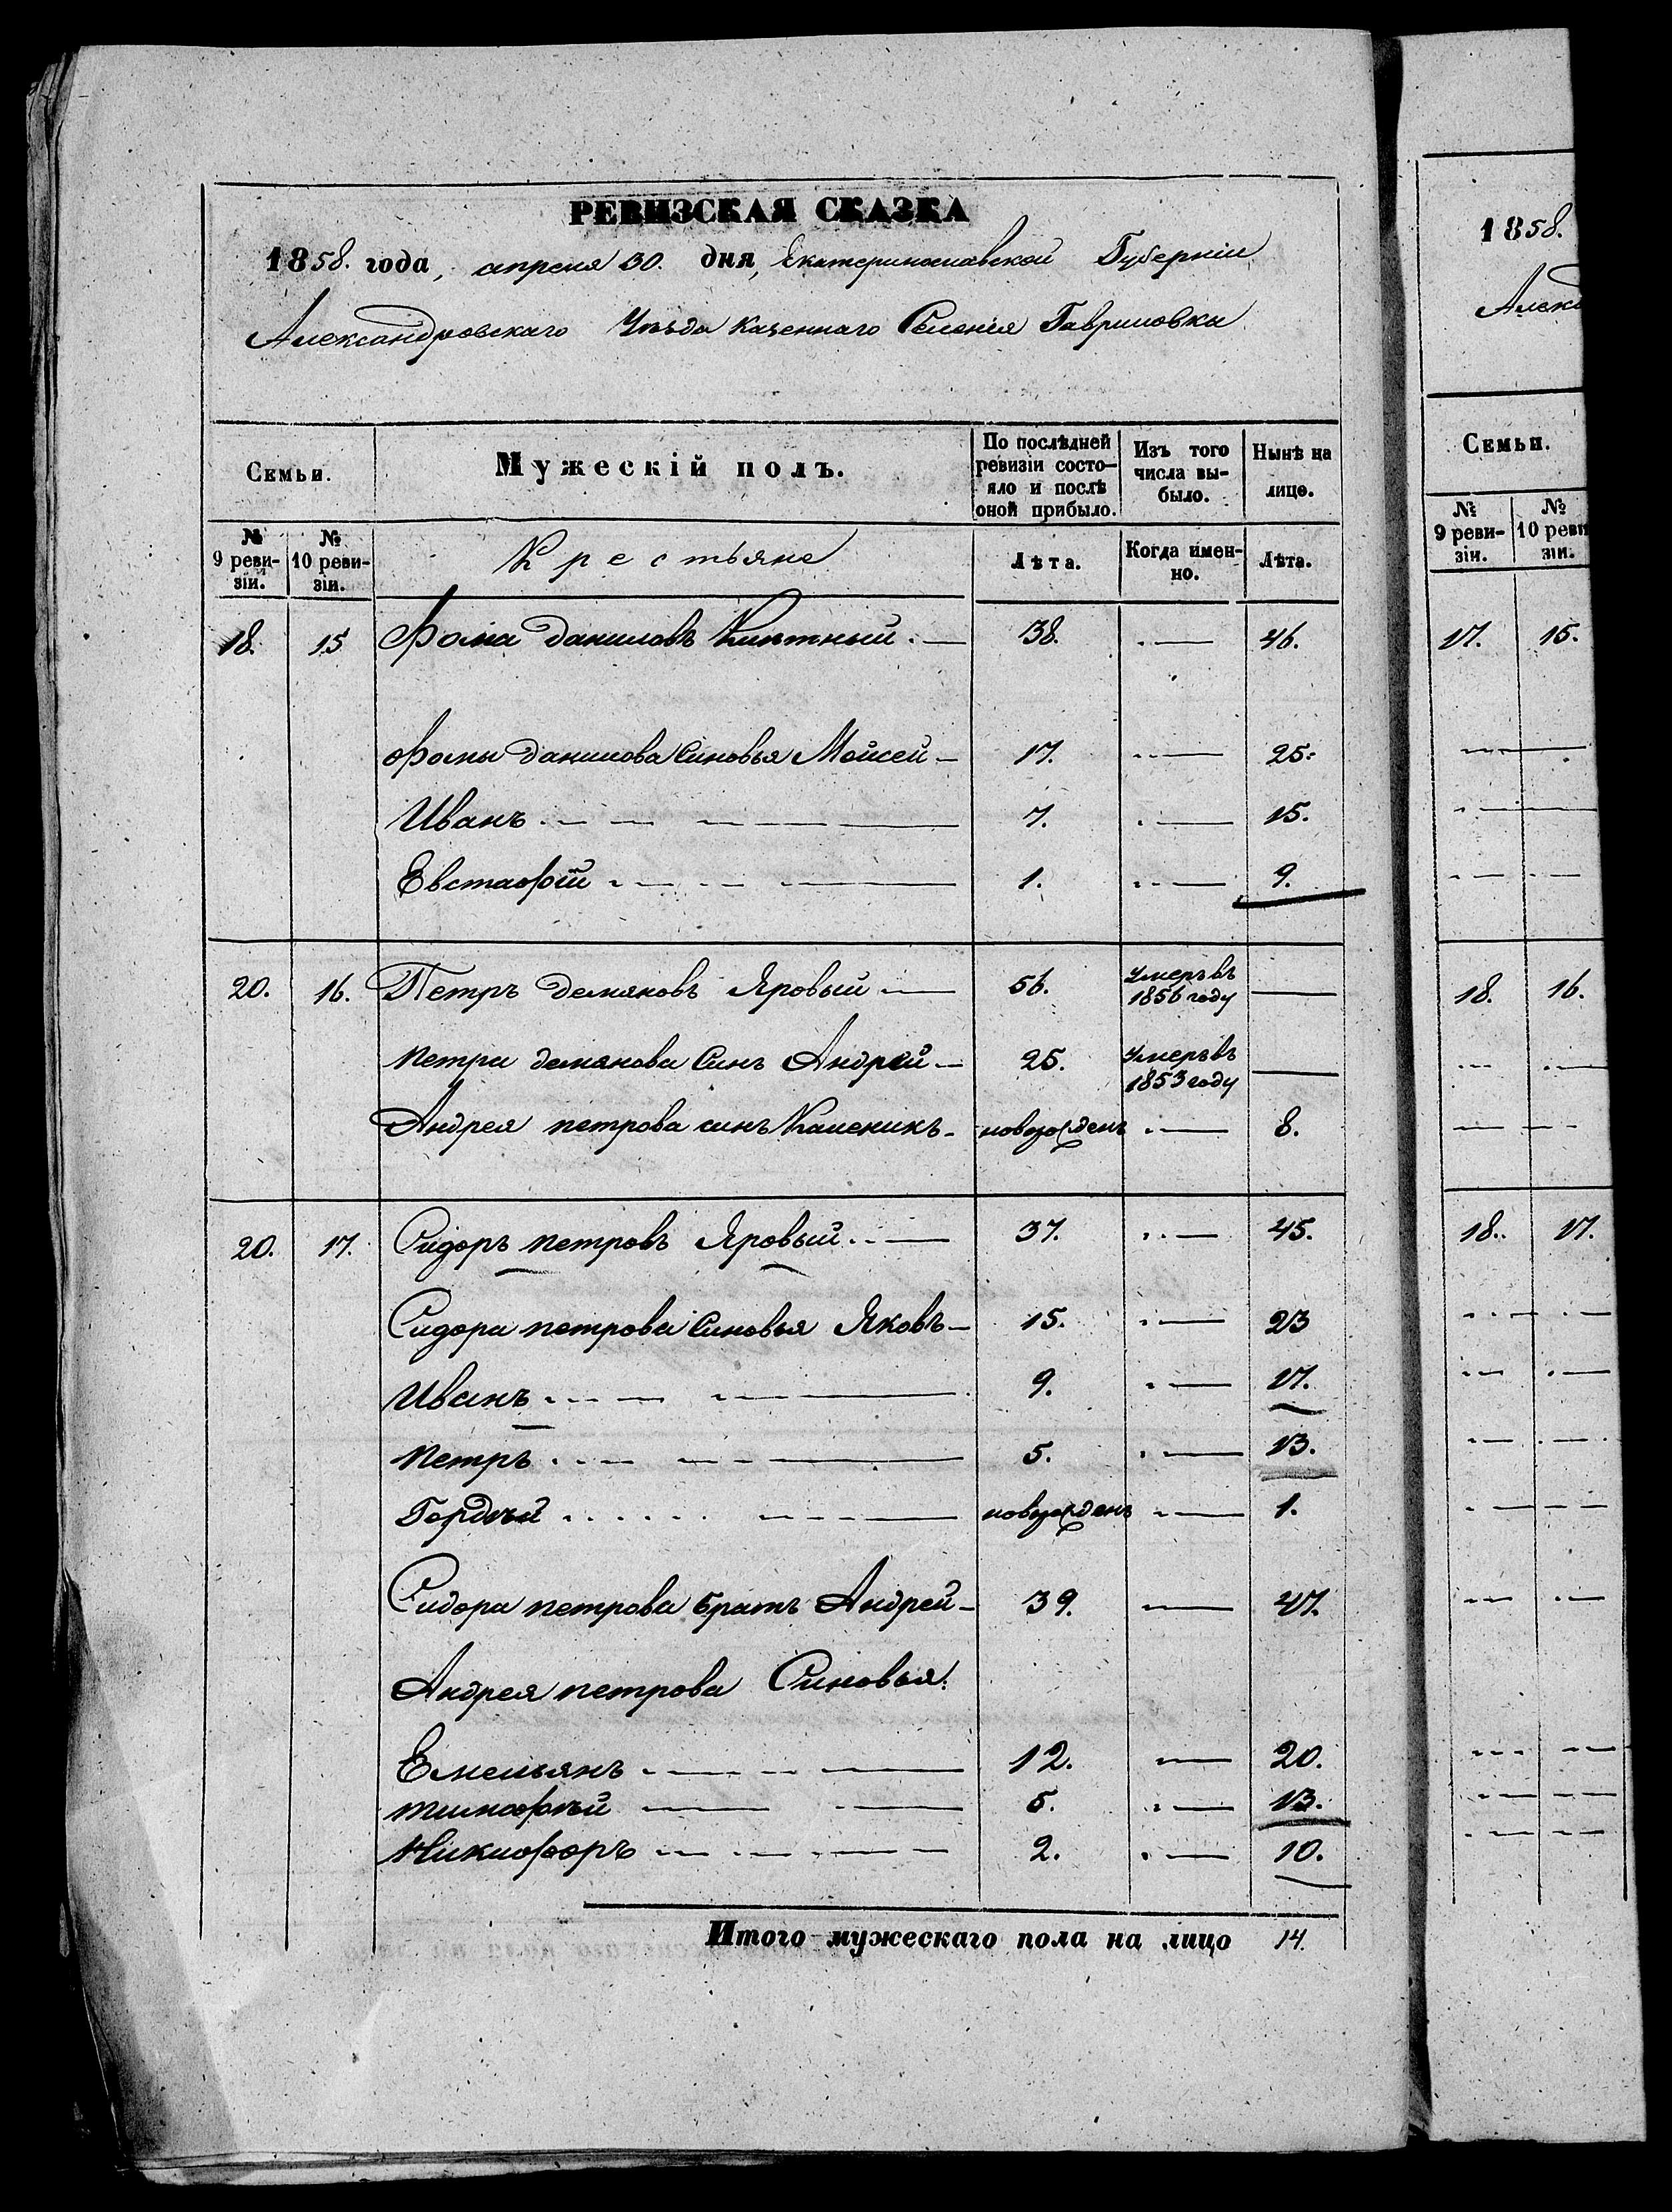 РЕВИЗСКАЯ СКАЗКА
1858. года, апреля 30. дня, Екатеринославской Губерніи
Александровскаго Уѣзда Казеннаго Селенія Гавриловки
Семьи. Мужескій полъ. По послѣдней ревизіи состо- яло и послѣ оной прибыло. Изъ того числа вы- было. Нынѣ на лице.
№ 9 реви- зіи. № 10 реви- зіи. Крестьяне Лѣта. Когда имен- но. Лѣта.
18. 15 Фома Даниловъ 38. 46.
Фомы Данилова Синовья Мойсей 17. 25.
Иванъ 7. 15.
Евстафій 1. 9.
20. 16. Петръ Демяновъ Яровый 56. Умеръ въ 1856 году
Петра Демянова Синъ Андрей 25. Умеръ въ 1853 году
Андрея Петрова синъ Каленикъ новорожденъ 8.
20. 17. Сидоръ Петровъ Яровый 37. 45.
Сидора Петрова Синовья Яковъ 15. 23
Иванъ 9. 17.
Петръ 5. 13.
Гордѣй новорожденъ 1.
Сидора Петрова братъ Андрей 39. 47.
Андрея Петрова Синовья:
Емельянъ 12. 20.
Тимофѣй 5. 13.
Никифоръ 2. 10.
Итого мужескаго пола на лицо 14.
1858.
Алекс
Семьи.
№ 9 реви- зіи. № 10 реви зіи.
17. 15.
18. 16.
18. 17.